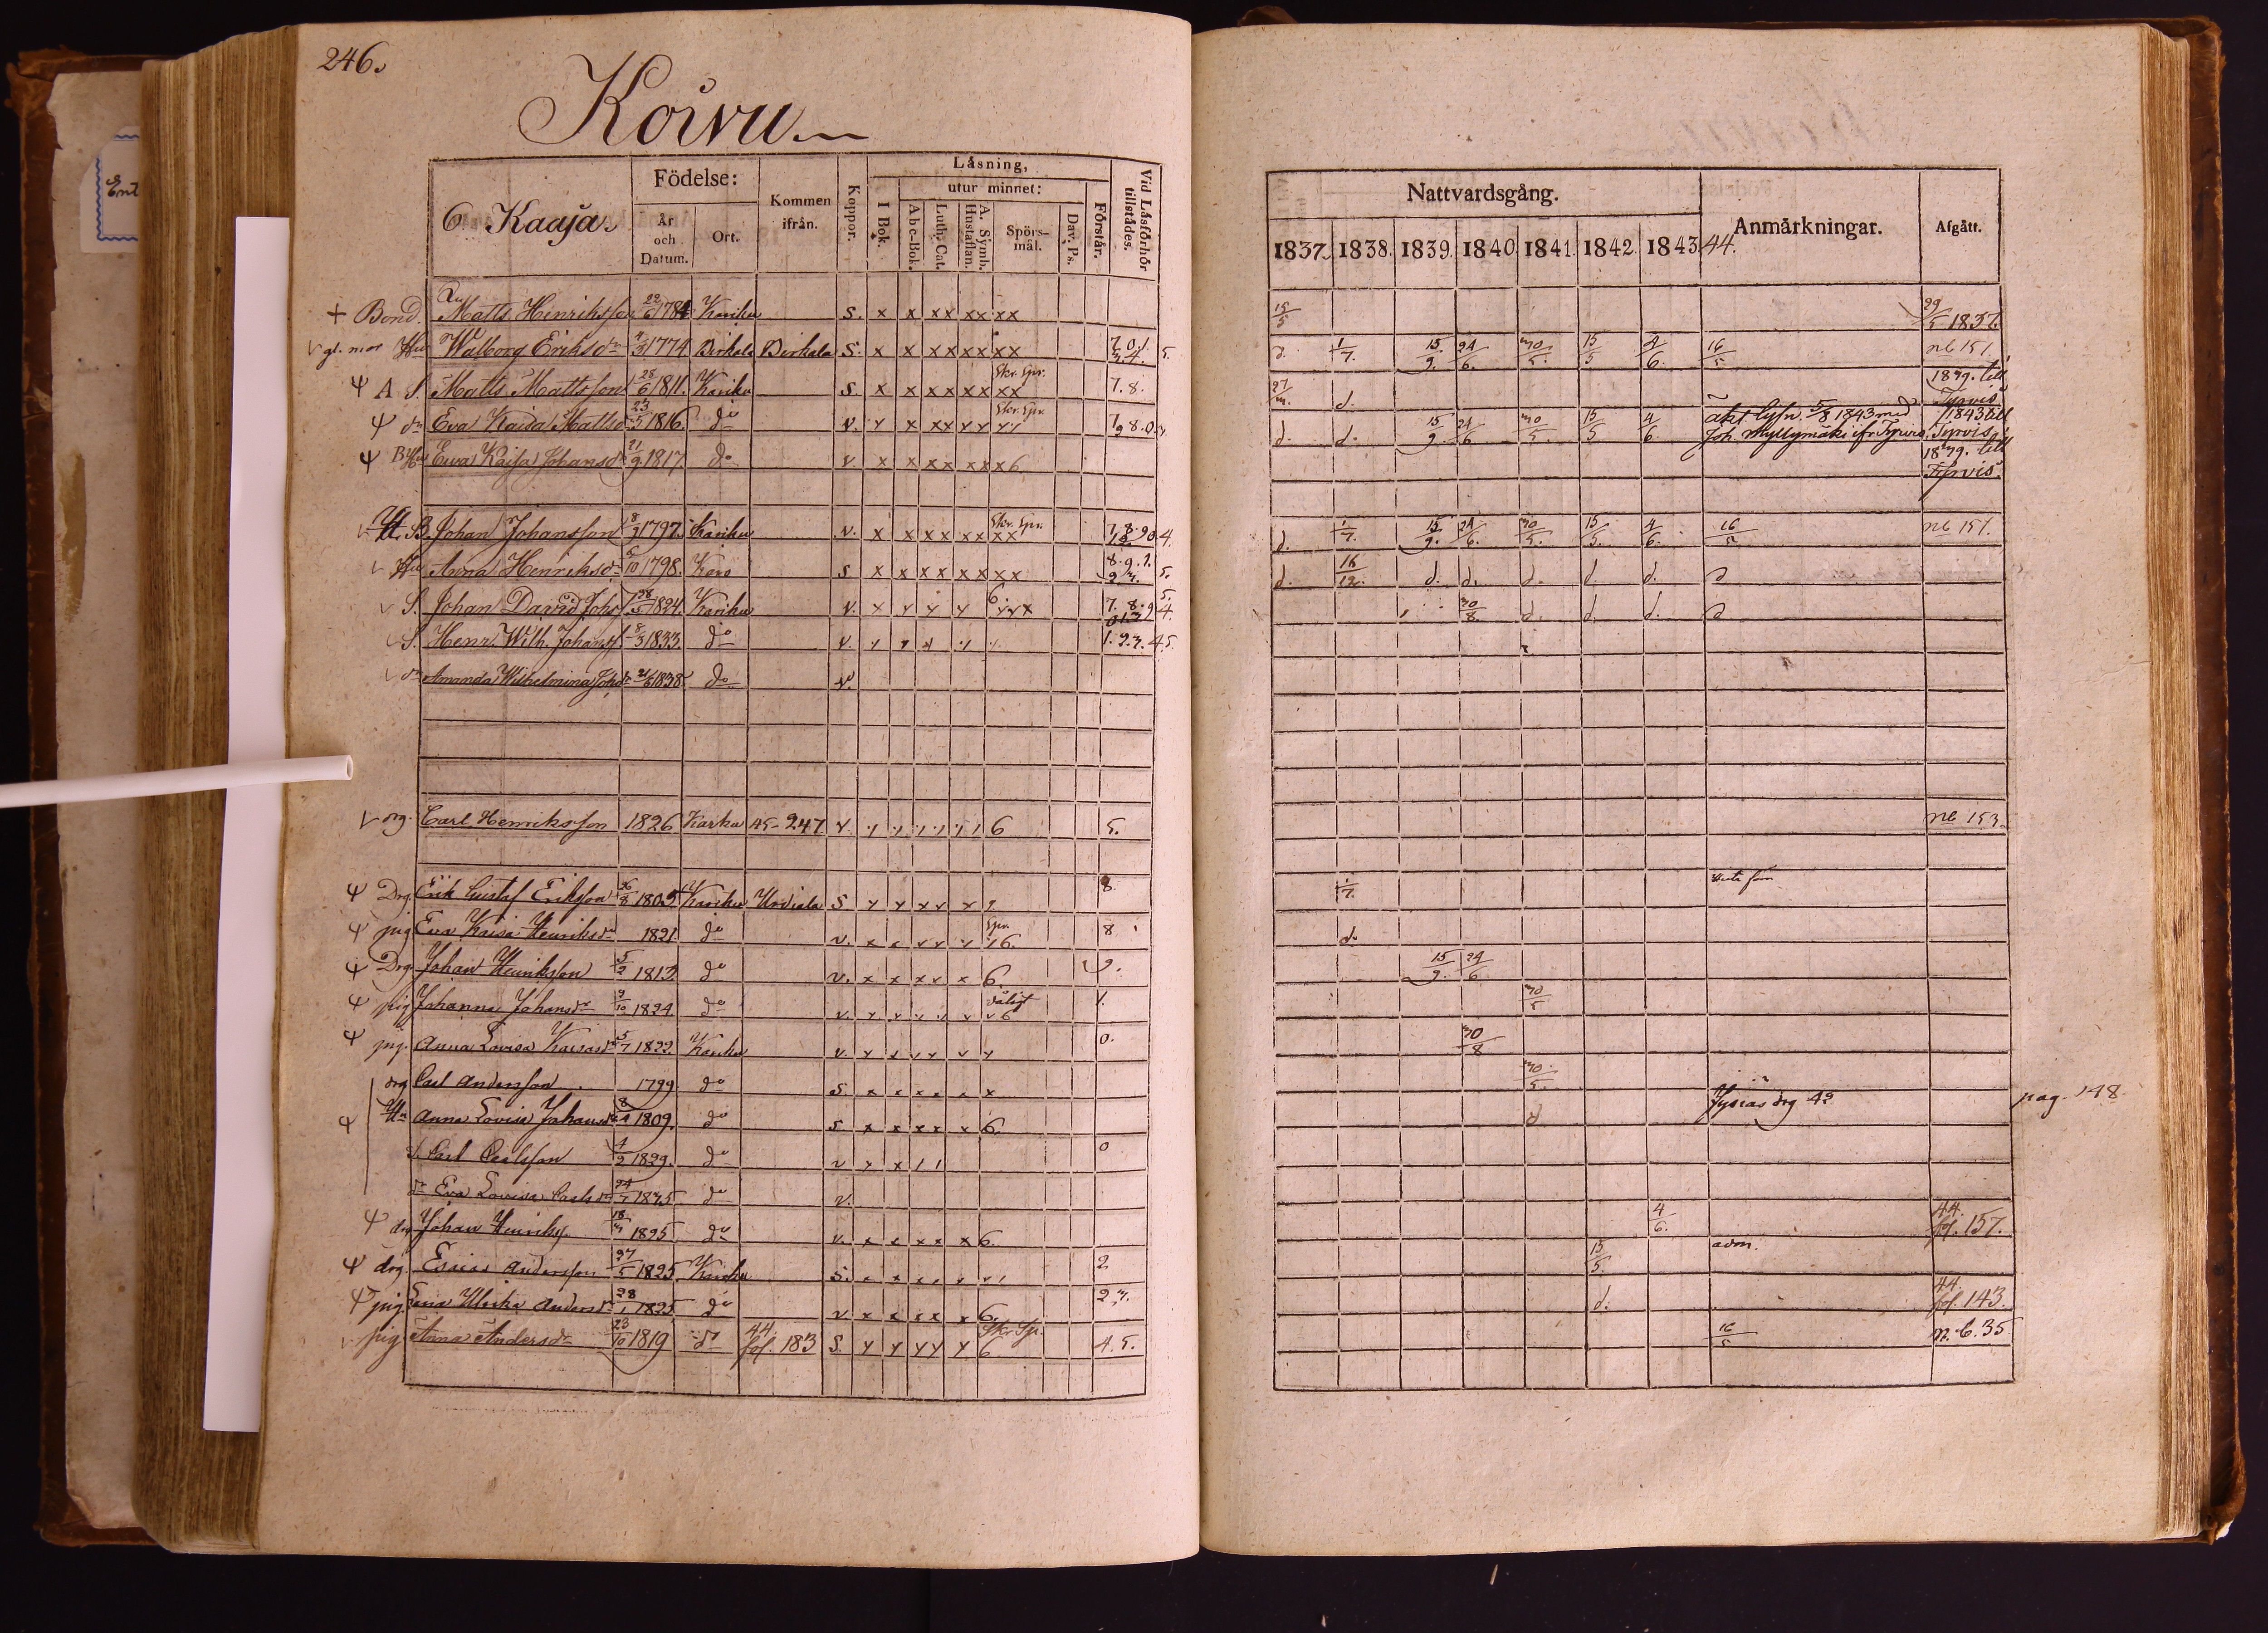 246.
Koivu
6. Kaaja.
Födelse:
År och Datum.
Ort.
Kommen ifrån.
Koppor.
Läsning,
I Bok.
utur minnet:
Abc-Bok.
Luth. Cat.
A. Symb. Hustaflan.
Spörs-mål.
Dav. Ps.
Förstår.
Vid Läsförhör tillstådes.
+ Bond. Matts Henriksson 22/6 1784 Karku S. x x xx xx xx
gl. mor Walborg Eriksdr 1774 Birkala Birkala S. x x xx xx xx
Ψ A S. Matts Mattsson 28/6 1811. Karku S x x xx xx xx Skr. Spr. 7.8.
Ψ dr Eva Kaisa Mattsd 23/5 1816 do v. Skr. Spr.
Ψ B Hu Ewa Kaisa Johansd 21/9 1817 do v x x xx xxx6
B. Johan Johansson 8/3 1797. Karku v. x x xx xx xx Skr. Spr.
Hu Anna Henriksdr 5/10 1798. S x x xx xx xx
S. Johan David Johs 28/5 1824. Karku v.
S. Henr. Wilh. Johanss. 8/3 1833. do v. 1.2.3.4.5
dr Amanda Wilhelmina Johdr 1838 do v.
drg. Carl Henriksson 1826 Karku 45-247 v. 6 5.
Ψ Drg. Erik Gustaf Eriksson 26/8 1805 Karku Urdiala S 8.
Ψ pig Eva Kaisa Henriksdr 1821 do v. Spr. 6. 8
Ψ Drg. Johan Henriksson 5/2 1813. do v. x x xx x 6. 9.
Ψ pig Johanna Johansdr 9/10 1824 do v. dåligt 6 1.
Ψ pig. Anna Lovisa Kaisasdr 5/7 1822. Karku v. 0.
drg Carl Andersson 1799 do S.
Ψ Hu Anna Lovisa Johansd 1809. do S 6.
S. Carl Carlsson 4/2 1829. do v 0
dr Eva Lovisa Carlsdr 24/7 1835 do v.
Ψ drg Johan Henrikss. 18/3 1825 do v. 6
Ψ drg. Esaias Andersson 27/5 1825 Karku S. 2
Ψ pig. Lena Ulrika Andersdr 28/1 1825 do v 6. 2 3.
pig Anna Andersdr 23/10 1819 do 44 fol. 183 S. Skr. Sp. 6 4.5.
Nattvardsgång.
Anmärkningar.
Afgått.
1837. 1838. 1839. 1840 1841. 1842. 1843. 44.
15/5 29/5 1837.
d. 1/7. 15/9. 24/6. 30/5. 15/5 4/6. 16/5 nb 151
27/m. d. 1839. till Tyrvis
d. d. 15/9 24/6 30/5. 15/5 4/6. akt lysn. 5/8 1843 med Joh. Myllymäki ifr. Tyrvis 1843 till Tyrvis.
1839. till Tyrvis.
d. 1/7. 15/9. 24/6. 30/5. 15/5. 4/6. 16/5 nb 151.
d. 16/12. d. d. d. d. d. d
30/8 d. d. d. d
nb 153.
1/7.
d.
15/9. 24/6
30/5
30/8
30/5.
d drg 42 pag. 148.
4/6. 44. fol. 157.
15/5. adm.
d. 44. fol. 143.
16/5 n. b. 35